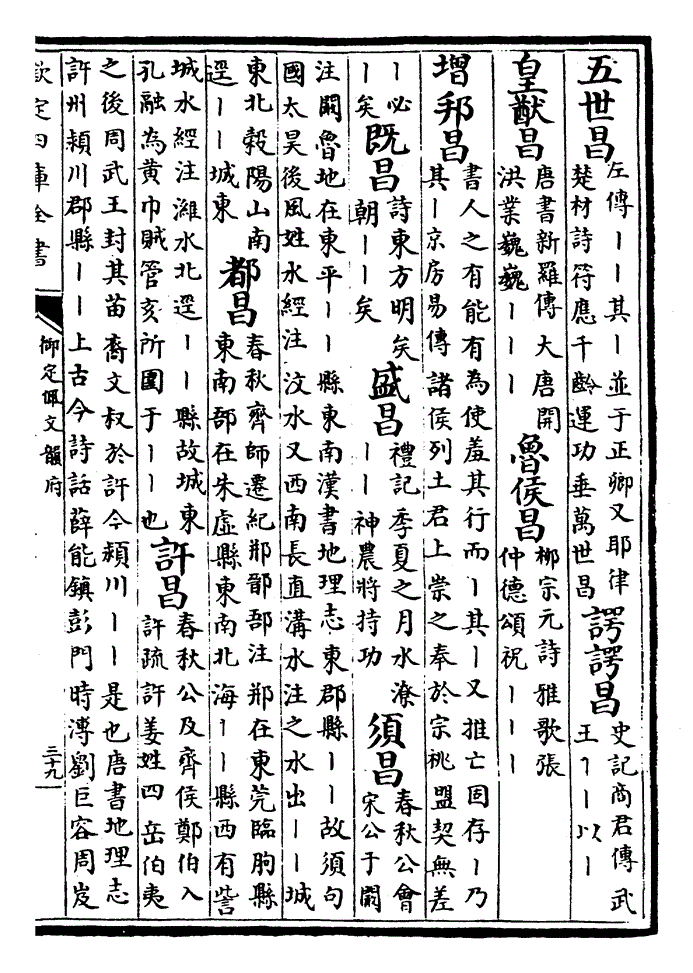 五世昌 左傳丨丨其丨並于正卿又耶律
楚材詩符應千齡運功垂萬世昌 諤諤昌 史記商君傳武
王丨丨以丨
皇猷昌 唐書新羅傳大唐開
洪業巍巍丨丨丨 魯侯昌 柳宗元詩雅歌張
仲德頌祝丨丨丨
增邦昌 書人之有能有為使羞其行而丨其丨又推亡固存丨乃
其丨京房易傳諸侯列土君上崇之奉於宗祧盟契無差
丨必
丨矣 既昌 詩東方明矣
朝丨丨矣 盛昌 禮記季夏之月水潦
丨丨神農將持功 須昌 春秋公會
宋公于闞
注闞魯地在東平丨丨縣東南漢書地理志東郡縣丨丨故須句
國太昊後風姓水經注汶水又西南長直溝水注之水出丨丨城
東北榖陽山南
逕丨丨城東 都昌 春秋齊師遷紀郱鄑郚注郱在東莞臨朐縣
東南郚在朱虚縣東南北海丨丨縣西有訾
城水經注濰水北逕丨丨縣故城東
孔融為黄巾賊管亥所圍于丨丨也 許昌 春秋公及齊侯鄭伯入
許疏許姜姓四岳伯夷
之後周武王封其苗裔文叔於許今潁川丨丨是也唐書地理志
許州潁川郡縣丨丨上古今詩話薛能鎮彭門時溥劉巨容周岌
欽定四庫全書
御定佩文韻府
三十九